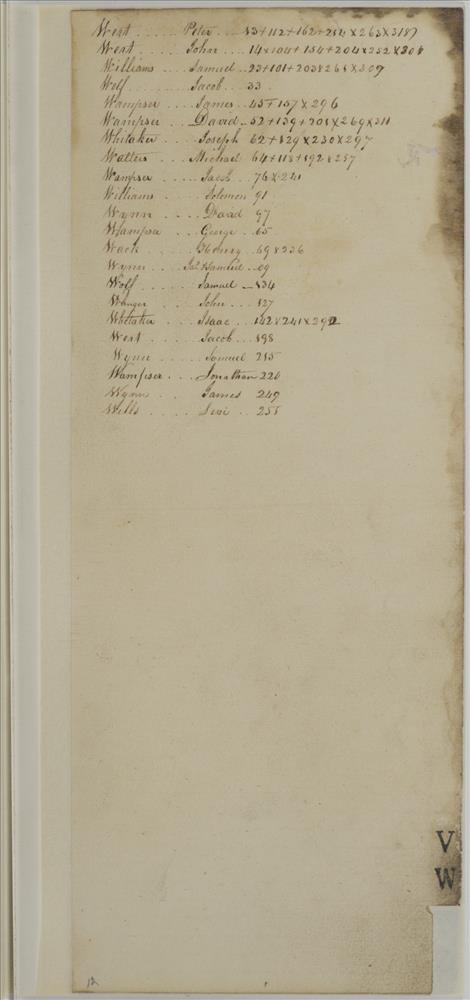 West ..... Peter .. 13+112+162+214x263x318
West .... John ... 14x104+154+204x252x308
Williams .. Samuel .. 23+101+203x268x309
Wolf ...... Jacob .. 33
Wampser ... James .. 45+157x296
Wampser .. David .. 52+139+208x269x311
Whitaker .. Joseph 62+129x230x297
Walters .. Michael 64+118+192x257
Wampser ... Jacob . 76x221
Williams .... Solomon 91
Wynn .... David 97
Wampser ... George .. 65
Wack .... Henry .. 69x236
Wynn ... Samuel .. 09
Wolf .... Samuel .. 134
Wanger ... John ... 127
Whitaker .. Isaac .. 142x241x292
West .... Jacob .. 198
Wynn .... Samuel 215
Wampser ... Jonathan 220
Wynn ... James 249
Wills .... Levi .. 255
V
W